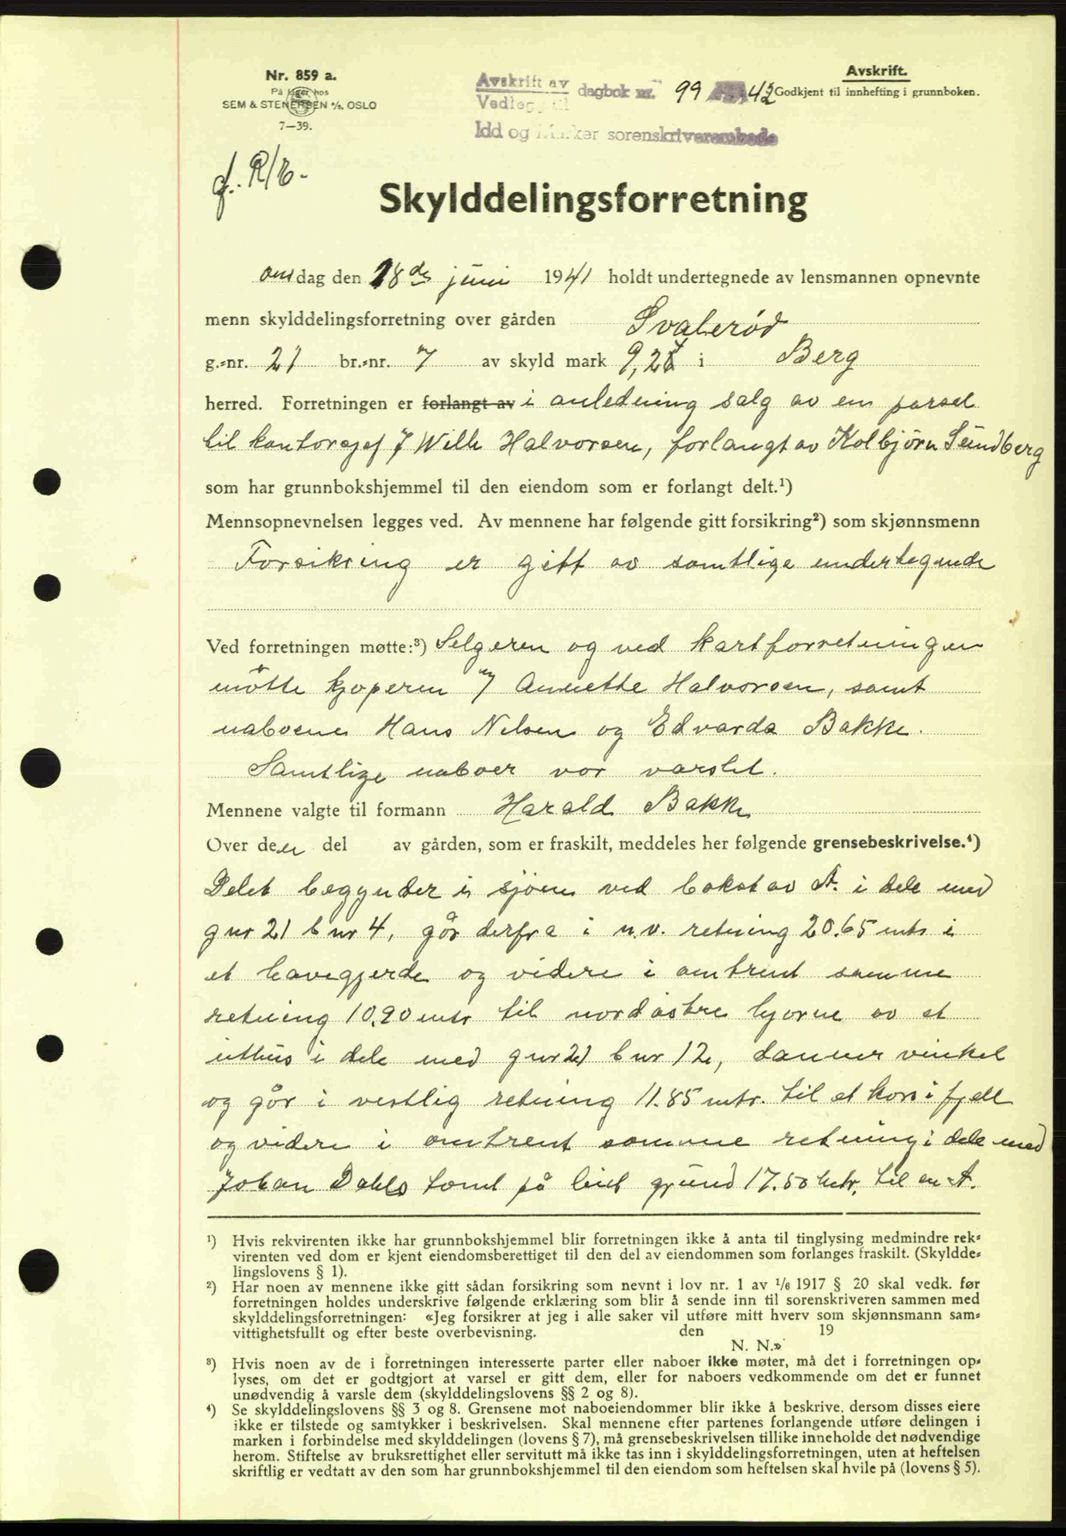 Nr. 859 a.
På lager hos
SEM & STENERSEN A/S, OSLO
7—39.
Avskrift av dagbok nr. 99 1942
Vedlegg til
Idd og Marker sorenskriverembede
Avskrift.
Godkjent til innhefting i grunnboken.
Skylddelingsforretning
Onsdag den 18de juni 1941 holdt undertegnede av lensmannen opnevnte
menn skylddelingsforretning over gården Svalerød
g.-nr. 21 br.-nr. 7 av skyld mark i Berg
herred. Forretningen er forlangt av i anledning salg av en parsel
til kontorsjef Halvorsen, forlangt av Kolbjørn Sundberg
som har grunnbokshjemmel til den eiendom som er forlangt delt.¹)
Mennsopnevnelsen legges ved. Av mennene har følgende gitt forsikring²) som skjønnsmenn
Forsikring er gitt av samtlige undertegnede
Ved forretningen møtte:³) Selgeren og ved kartforretningen
møtte kjøperen Annette Halvorsen, samt
naboene Hans Nilsen og Edvarda Bakke.
Samtlige naboer var varslet.
Mennene valgte til formann Harald Bakke
Over den del av gården, som er fraskilt, meddeles her følgende grensebeskrivelse.⁴)
Delet begynder i sjøen ved bokstav A. i dele med
gnr 21 bnr 4, går derfra i n.v. retning 20.65 mtr i
et havegjerde og videre i omtrent samme
retning 10.90 mtr til nordøstre hjørne av et
uthus i dele med gnr 21 bnr 12, danner vinkel
og går i vestlig retning 11.85 mtr. til et kors i fjell
og videre i omtrent samme retning i dele med
Johan Dahls tomt på leiet grund 17.50 mtr. til en A.
¹) Hvis rekvirenten ikke har grunnbokshjemmel blir forretningen ikke å anta til tinglysing medmindre rek-
virenten ved dom er kjent eiendomsberettiget til den del av eiendommen som forlanges fraskilt. (Skyldde-
lingslovens § 1).
²) Har noen av mennene ikke gitt sådan forsikring som nevnt i lov nr. 1 av 1/6 1917 § 20 skal vedk. før
forretningen holdes underskrive følgende erklæring som blir å sende inn til sorenskriveren sammen med
skylddelingsforretningen: «Jeg forsikrer at jeg i alle saker vil utføre mitt hverv som skjønnsmann sam-
vittighetsfullt og efter beste overbevisning. den 19
N. N.»
³) Hvis noen av de i forretningen interesserte parter eller naboer ikke møter, må det i forretningen op-
lyses, om det er godtgjort at varsel er gitt dem, eller for naboers vedkommende om det er funnet
unødvendig å varsle dem (skylddelingslovens §§ 2 og 8).
⁴) Se skylddelingslovens §§ 3 og 8. Grensene mot naboeiendommer blir ikke å beskrive, dersom disses eiere
ikke er tilstede og samtykker i beskrivelsen. Skal mennene efter partenes forlangende utføre delingen i
marken i forbindelse med skylddelingen (lovens § 7), må grensebeskrivelsen tillike inneholde det nødvendige
herom. Stiftelse av bruksrettighet eller servitutt må ikke tas inn i skylddelingsforretningen, uten at heftelsen
skriftlig er vedtatt av den som har grunnbokshjemmel til den eiendom som heftelsen skal hvile på (lovens § 5).